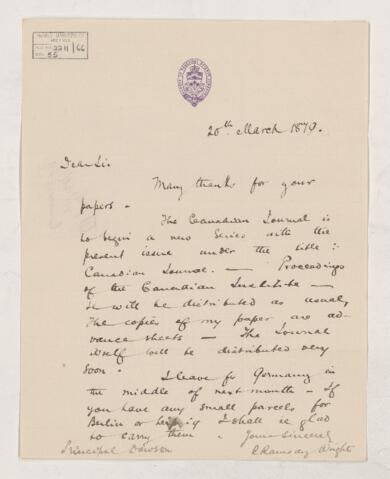 McGILL UNIVERSITY
ARCHIVES
ACC. NO. 2211/66
REF. 55
20th March 1879.
Dear Sir
Many thanks for your
papers –
The Canadian Journal is
to begin a new Series with the
present issue under the title :
Canadian Journal. — Proceedings
of the Canadian Institute —
it will be distributed as usual,
The copies of my paper are ad-
vance sheets — The Journal
itself will be distributed very
soon –
I leave for Germany in
the middle of next month – If
you have any small parcels for
Berlin or Leipzig I shall be glad
to carry them. Yours Sincerely
Principal Dawson R Ramsay Wright